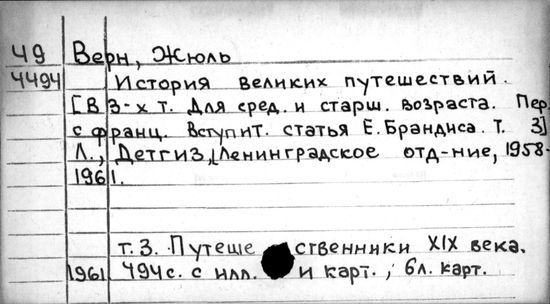 49 Верн, Жюль
4494 История великих путешествий.
[В 3-х т. Для сред. и старш. возраста. Пер.
с франц. Вступит. статья Е. Брандиса. Т. 3]
Л., Детгиз, Ленинградское отд-ние, 1958-
1961.
т. 3. Путеше ственники XIX века.
1961 494 с. с илл. и карт.; 6 л. карт.